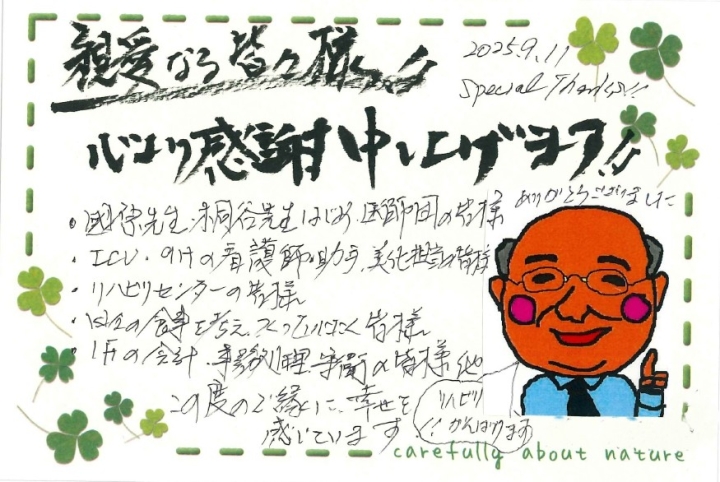 親愛なる皆々様へ!!
2025.9.11
Special Thanks!!
心より感謝申し上げます!!
ありがとうございました
・先生・桐谷先生はじめ、医師団の皆様
・ICU・9Hの看護師・助手、美化担当の皆様
・リハビリセンターの皆様
・の食事を考え、つくっていただく皆様
・1Fの会計、事務処理、守衛の皆様他
この度のご縁に、幸せを
感じています
リハビリ
がんばります!!
carefully about nature